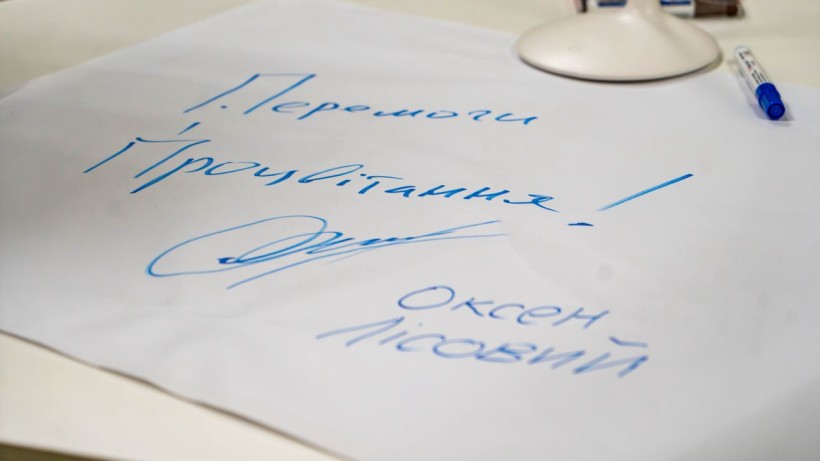 Перемоги
Процвітання!
Оксен
Лісовий